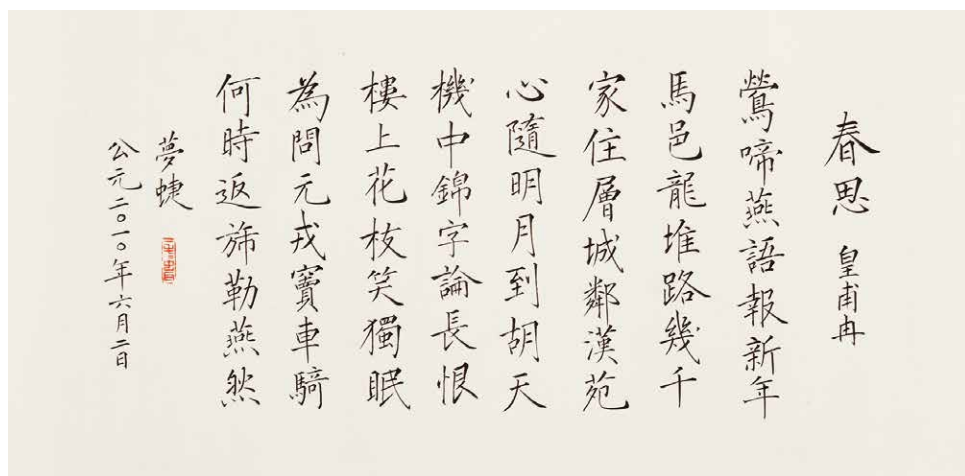 春思 皇甫冉
鶯啼燕語報新年
馬邑龍堆路幾千
家住層城鄰漢苑
心隨明月到胡天
機中錦字論長恨
樓上花枝笑獨眠
為問元戎竇車騎
何時返旆勒燕然
夢蜨
公元二〇一〇年六月二日